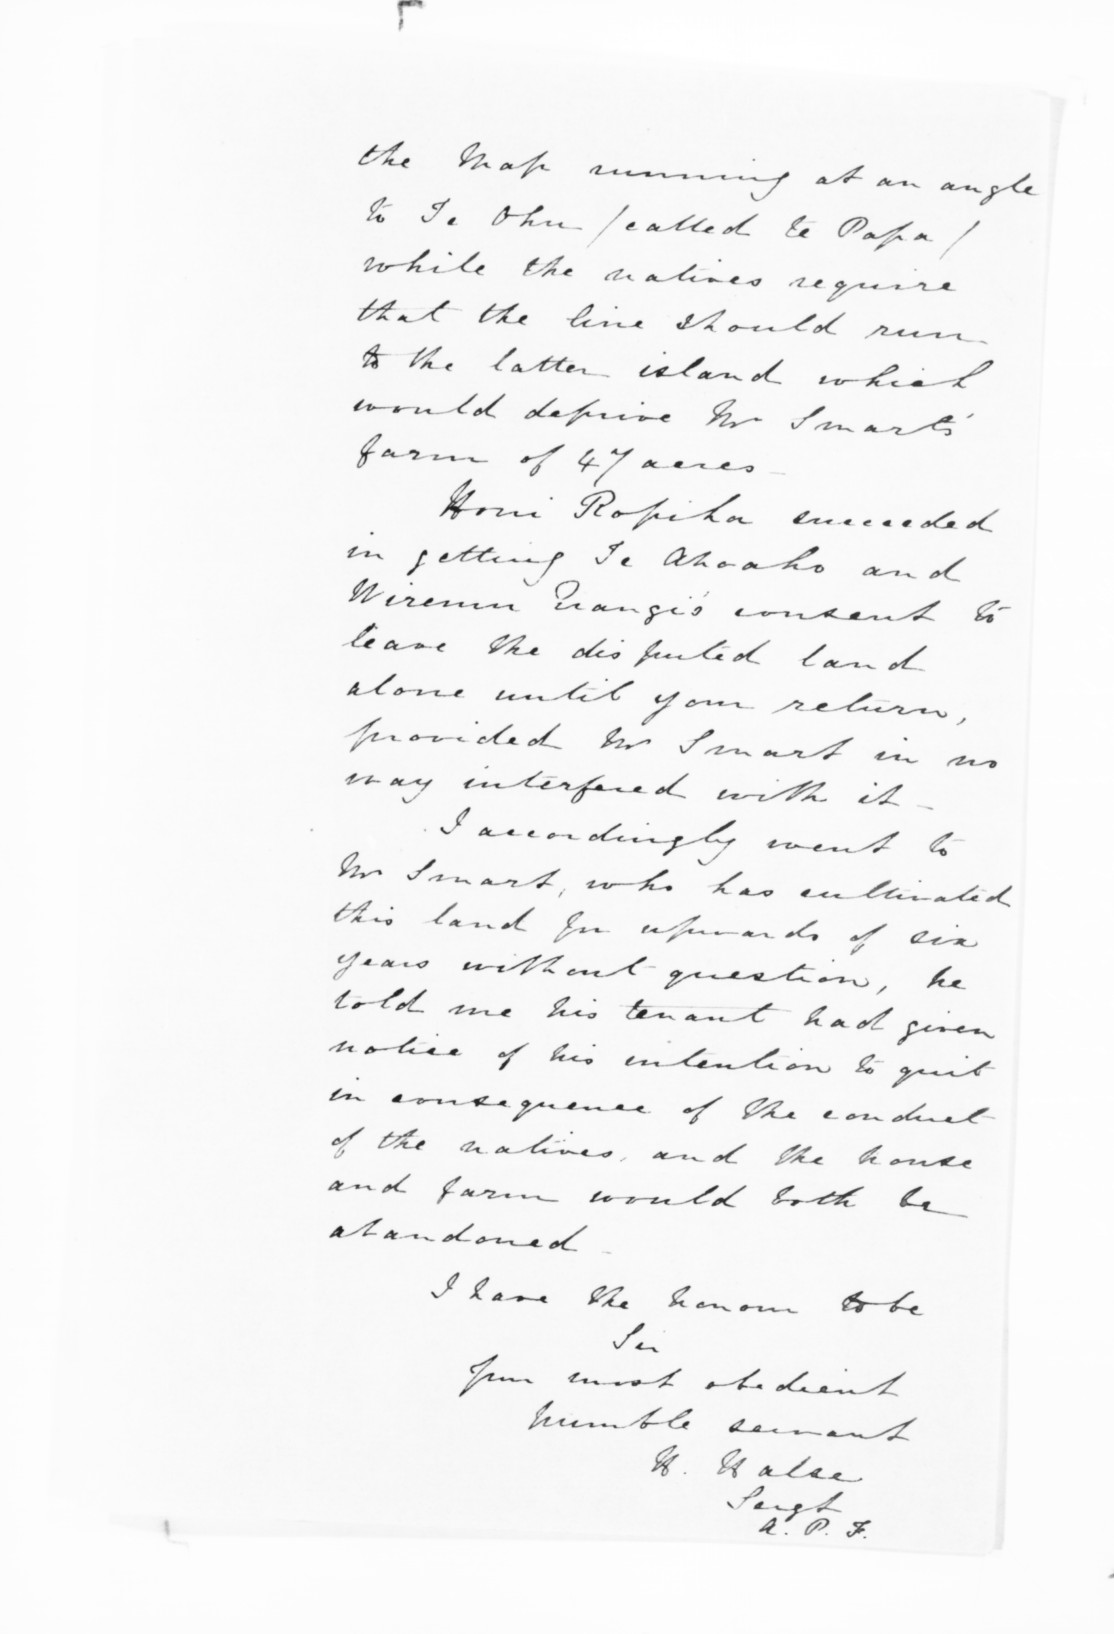 the Map running at an angle
to Te Ohu /called te Papa/
while the natives require
that the line should run
to the latter island which
would deprive Mr Smart's
farm of 47 acres
Honi Ropiha succeeded
in getting Te Ahoaho and
Wiremu Nangi's consent to
leave the disputed land
alone until your return,
provided Mr Smart in no
way interfered with it
I accordingly went to
Mr Smart, who has cultivated
this land for upwards of six
years without question, he
told me his tenant had given
notice of his intention to quit
in consequence of the conduct
of the natives, and the house
and farm would both be
abandoned
I have the honour to be
Sir
Your most obedient
humble servant
H. Halse
Sergt
A. P. F.